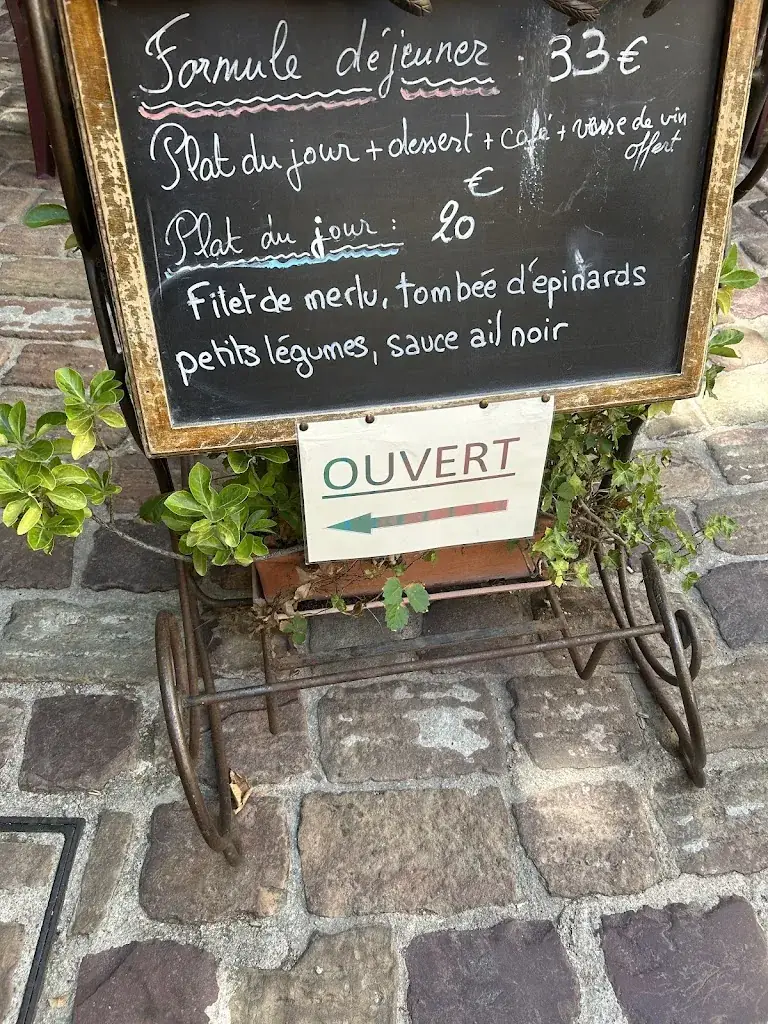 Formule déjeuner 33€
Plat du jour + dessert + café + verre de vin
offert
Plat du jour : 20 €
Filet de merlu, tombée d'épinards
petits légumes, sauce ail noir
OUVERT